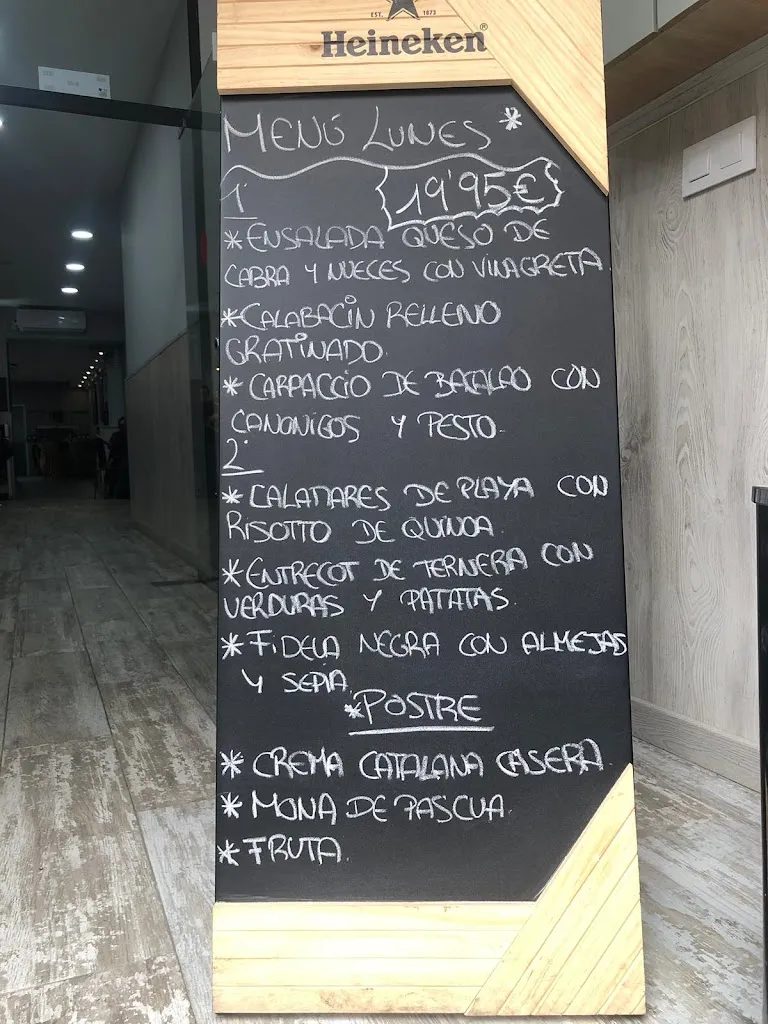 EST. 1873
Heineken®
MENÚ LUNES *
1º
19'95€
*ENSALADA QUESO DE
CABRA Y NUECES CON VINAGRETA.
*CALABACÍN RELLENO
GRATINADO.
* CARPACCIO DE BACALAO CON
CANONIGOS Y PESTO.
2º
*CALAMARES DE PLAYA CON
RISOTTO DE QUINOA.
*ENTRECOT DE TERNERA CON
VERDURAS Y PATATAS.
*FIDEUA NEGRA CON ALMEJAS
Y SEPIA.
*POSTRE
* CREMA CATALANA CASERA.
* MONA DE PASCUA.
* FRUTA.